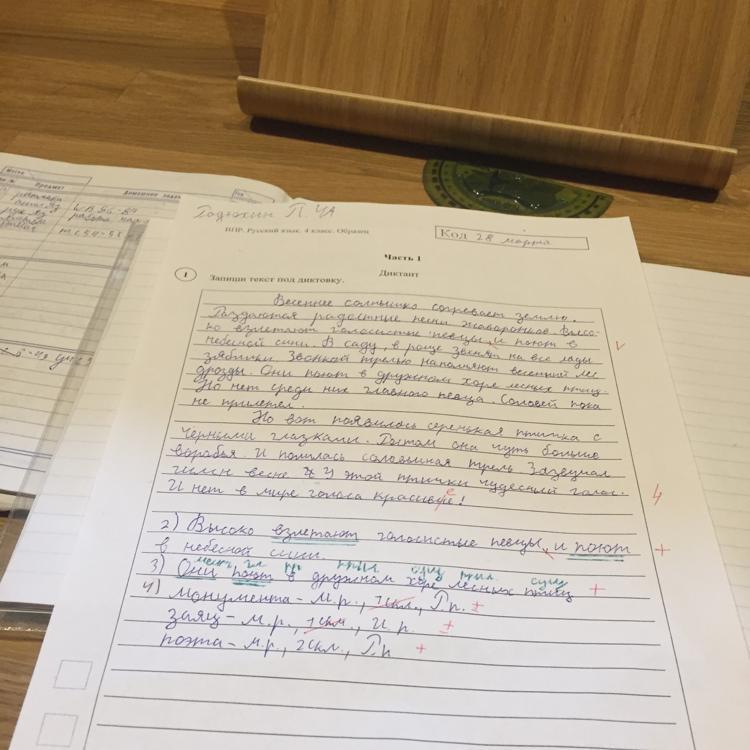 Предмет
Домашнее задан
Годюкин П. 4А
ВПР. Русский язык. 4 класс. Образец
Код 28 марта
Часть 1
Диктант
1 Запиши текст под диктовку.
Весеннее солнышко согревает землю.
Раздаются радостные песни жаворонков. Высо-
ко взлетают голосистые певцы, и поют в
небесной сини. В саду, в роще звенят на все лады
зяблики. Звонкой трелью наполняют весенний лес
дрозды. Они поют в дружном хоре лесных птиц.
Но нет среди них главного певца. Соловей пока
не прилетел.
Но вот появилась серенькая птичка с
чёрными глазками. Ростом она чуть больше
воробья. И полилась соловьиная трель. Зазвучал
гимн весне. У этой птички чудесный голос.
И нет в мире голоса красивуе!
2) Высоко взлетают голосистые певцы, и поют
в небесной сини.
мест. гл. пр. прил. сущ. прил. сущ
3) Они поют в дружном хоре лесных птиц
4) монумента - м.р., 1скл., Рп.
заяц - м.р., 1скл., И.р.
поэта - м.р., 2скл., Рп